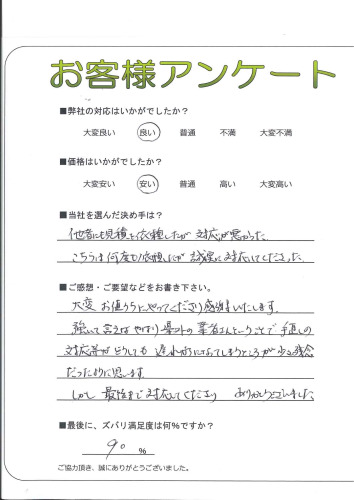 お客様アンケート
■弊社の対応はいかがでしたか？
大変良い 良い 普通 不満 大変不満
■価格はいかがでしたか？
大変安い 安い 普通 高い 大変高い
■当社を選んだ決め手は？
他社にも見積を依頼したが 対応が悪かった。
こちらは何度も依頼したが 誠実に対応してくださった。
■ご感想・ご要望などをお書き下さい。
大変 お値うちにやってくださり感謝いたします。
強いて言えば やはり 県外の業者さんということで 手直しの
対応等がどうしても 遅れがちになってしまうところが 少し残念
だったように思います。
しかし 最後まで対応してくださり ありがとうございました。
■最後に、ズバリ満足度は何%ですか？
90 %
ご協力頂き、誠にありがとうございました。